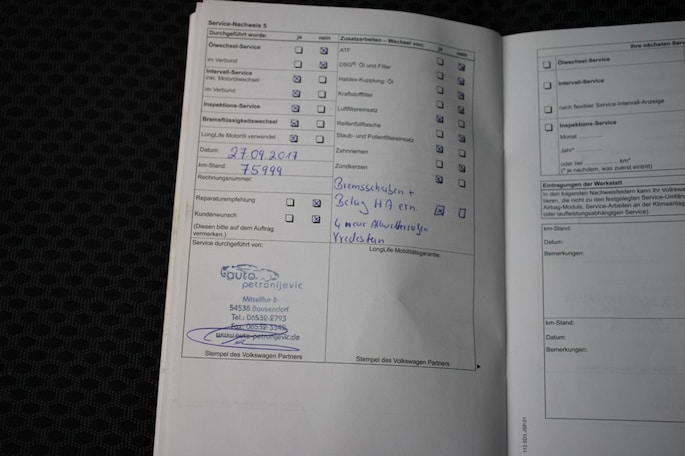 Service-Nachweis 5
Durchgeführt wurde: ja nein
Ölwechsel-Service
im Verbund
Intervall-Service
inkl. Motorölwechsel
im Verbund
Inspektions-Service
Bremsflüssigkeitswechsel
LongLife Motoröl verwendet
Datum: 27.09.2017
km-Stand: 75999
Rechnungsnummer:
Reparaturempfehlung
Kundenwunsch
(Diesen bitte auf dem Auftrag
vermerken.)
Service durchgeführt von:
auto
petronijevic
Mittelflur 8
54538 Bausendorf
Tel.: 06532-2793
Fax: 06532-3342
www.auto-petronijevic.de
Stempel des Volkswagen Partners
Zusatzarbeiten – Wechsel von: ja nein
ATF
DSG® Öl und Filter
Haldex-Kupplung: Öl
Kraftstofffilter
Luftfiltereinsatz
Reifenfüllflasche
Staub- und Pollenfiltereinsatz
Zahnriemen
Zündkerzen
Bremsscheiben +
Belag HA ern.
4 neue Allwetterreifen
Vredestein
LongLife Mobilitätsgarantie:
Stempel des Volkswagen Partners
Ihre nächsten
Ölwechsel-Service
Intervall-Service
nach flexibler Service-Intervall-Anzeige
Inspektions-Service
Monat
Jahr*
oder bei km*
(* je nachdem, was zuerst eintritt)
Eintragungen der Werkstatt
In den folgenden Nachweisfeldern kann Ihr Volkswa
tieren, die nicht zu den festgelegten Service-Umfäng
Airbag-Module, Service-Arbeiten an der Klimaanlage
oder laufleistungsabhängigen Service).
km-Stand:
Datum:
Bemerkungen:
km-Stand:
Datum:
Bemerkungen: